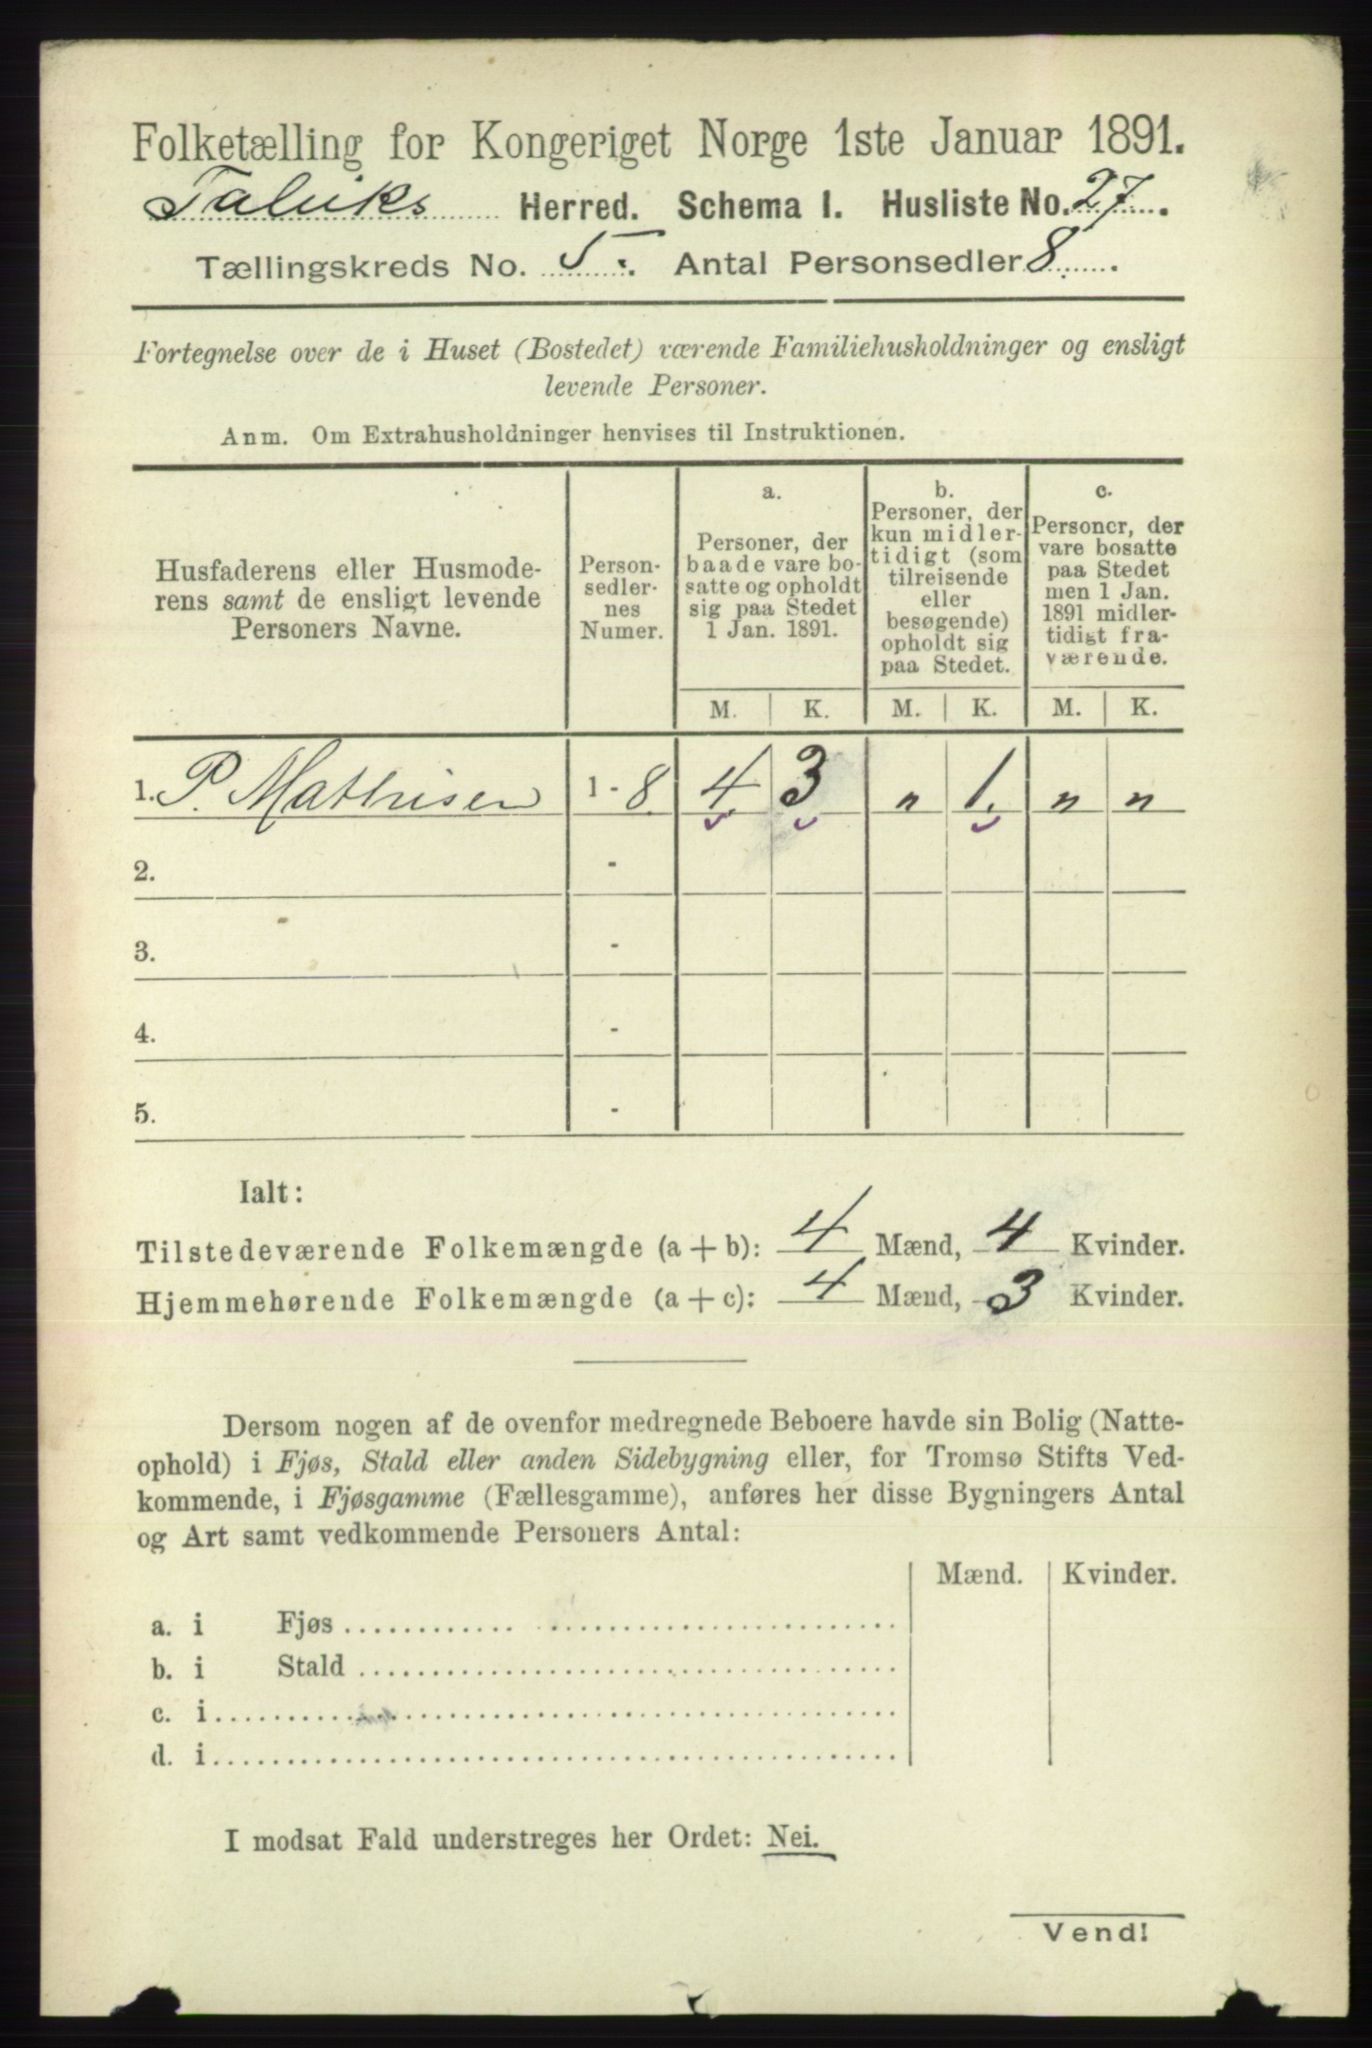 Folketælling for Kongeriget Norge 1ste Januar 1891.
Talviks Herred. Schema I. Husliste No. 27.
Tællingskreds No. 5. Antal Personsedler 8.
Fortegnelse over de i Huset (Bostedet) værende Familiehusholdninger og ensligt
levende Personer.
Anm. Om Extrahusholdninger henvises til Instruktionen.
Husfaderens eller Husmode-
rens samt de ensligt levende
Personers Navne.
Person-
sedler-
nes
Numer.
a.
Personer, der
baade vare bo-
satte og opholdt
sig paa Stedet
1 Jan. 1891.
b.
Personer, der
kun midler-
tidigt (som
tilreisende
eller
besøgende)
opholdt sig
paa Stedet.
c.
Personer, der
vare bosatte
paa Stedet
men 1 Jan.
1891 midler-
tidigt fra-
værende.
M. K. M. K. M. K.
1. P. Mathisen 1 - 8. 4. 3 " 1. " "
2. -
3. -
4. -
5. -
Ialt:
Tilstedeværende Folkemængde (a + b): 4 Mænd, 4 Kvinder.
Hjemmehørende Folkemængde (a + c): 4 Mænd, 3 Kvinder.
Dersom nogen af de ovenfor medregnede Beboere havde sin Bolig (Natte-
ophold) i Fjøs, Stald eller anden Sidebygning eller, for Tromsø Stifts Ved-
kommende, i Fjøsgamme (Fællesgamme), anføres her disse Bygningers Antal
og Art samt vedkommende Personers Antal:
Mænd. Kvinder.
a. i Fjøs
b. i Stald
c. i
d. i
I modsat Fald understreges her Ordet: Nei.
Vend!